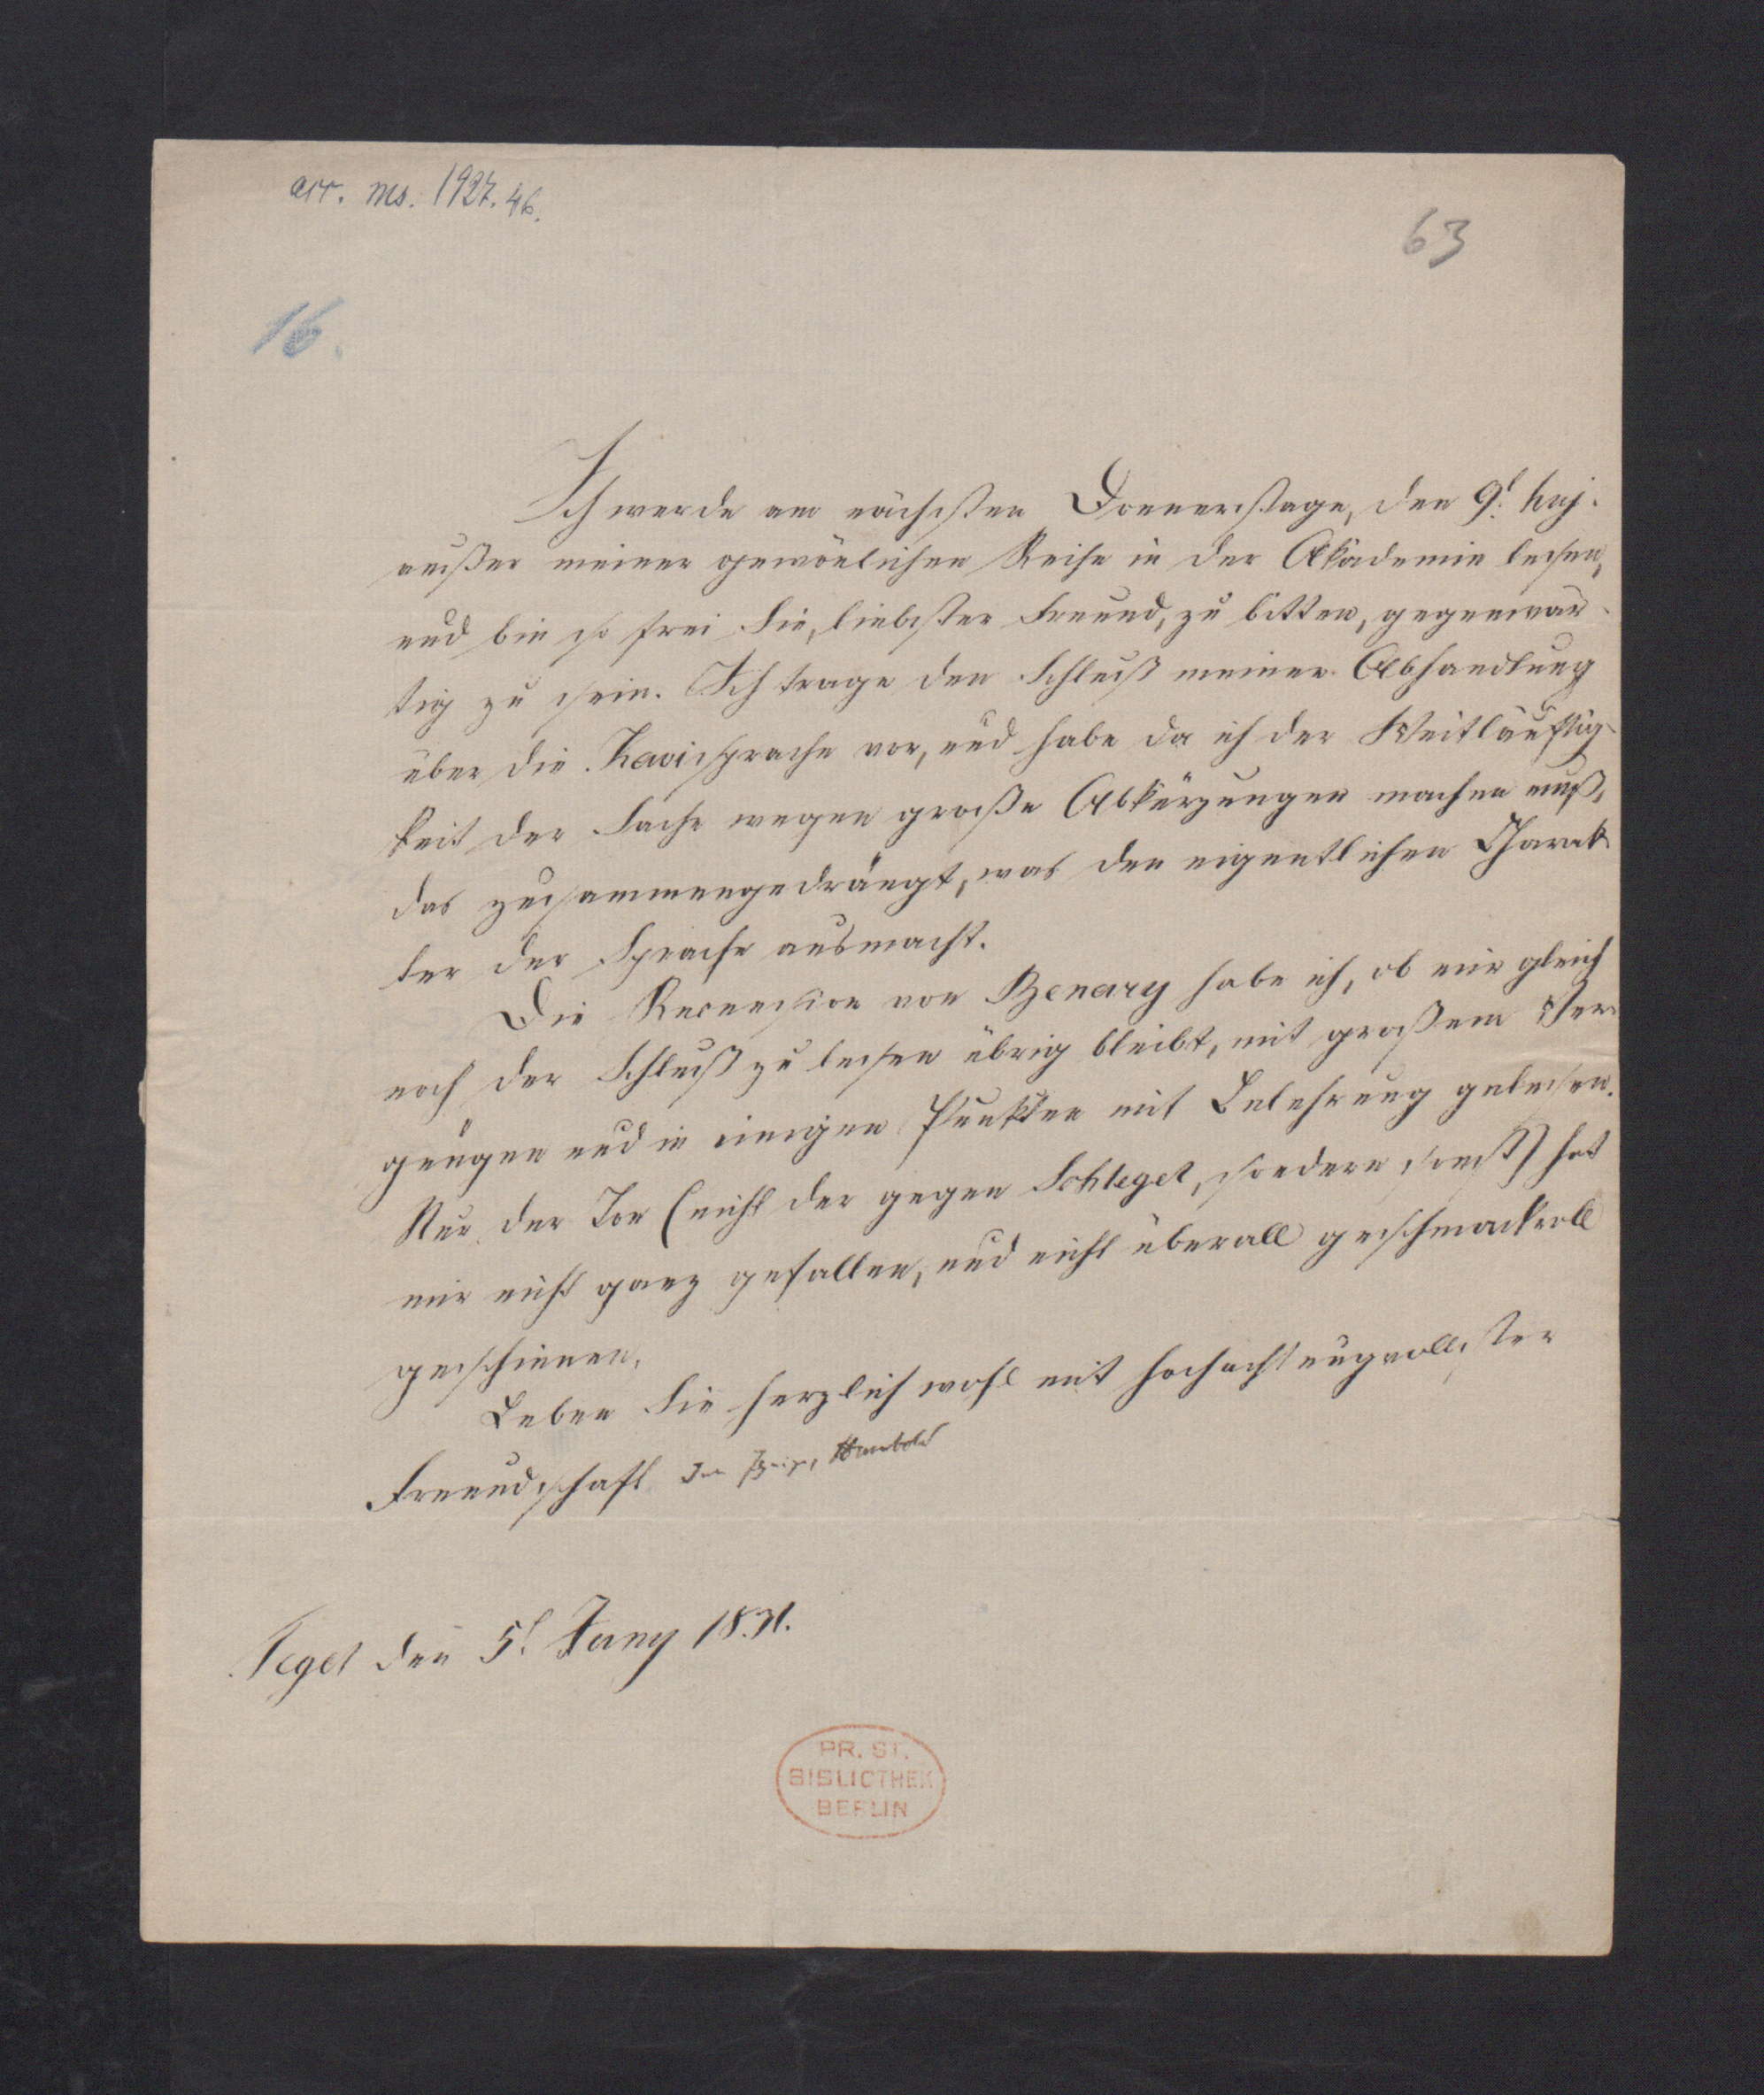 acc. ms. 1927. 46.
63
16.
Ich werde am nächsten Donnerstage, den 9t. huj.
außer meiner gewönlichen Reihe in der Akademie lesen,
und bin so frei Sie, liebster Freund, zu bitten, gegenwär-
tig zu sein. Ich trage den Schluß meiner Abhandlung
über die Kavisprache vor, und habe da ich der Weitläuftig-
keit der Sache wegen große Abkürzungen machen muß,
das zusammengedrängt, was den eigentlichen Charak
ter der Sprache ausmacht.
Die Recension von Benary habe ich, ob mir gleich
noch der Schluß zu lesen übrig bleibt, mit großem Ver-
gnügen und in einigen Punkten mit Belehrung gelesen.
Nur der Ton (nicht der gegen Schlegel, sondern sonst) hat
mir nicht ganz gefallen, und nicht überall geschmackvoll
geschienen.
Leben Sie herzlich wohl mit hochachtungvollster
Freundschaft der Ihrige, Humboldt
Tegel den 5t. Juny 1831.
PR. ST.
BIBLIOTHEK
BERLIN